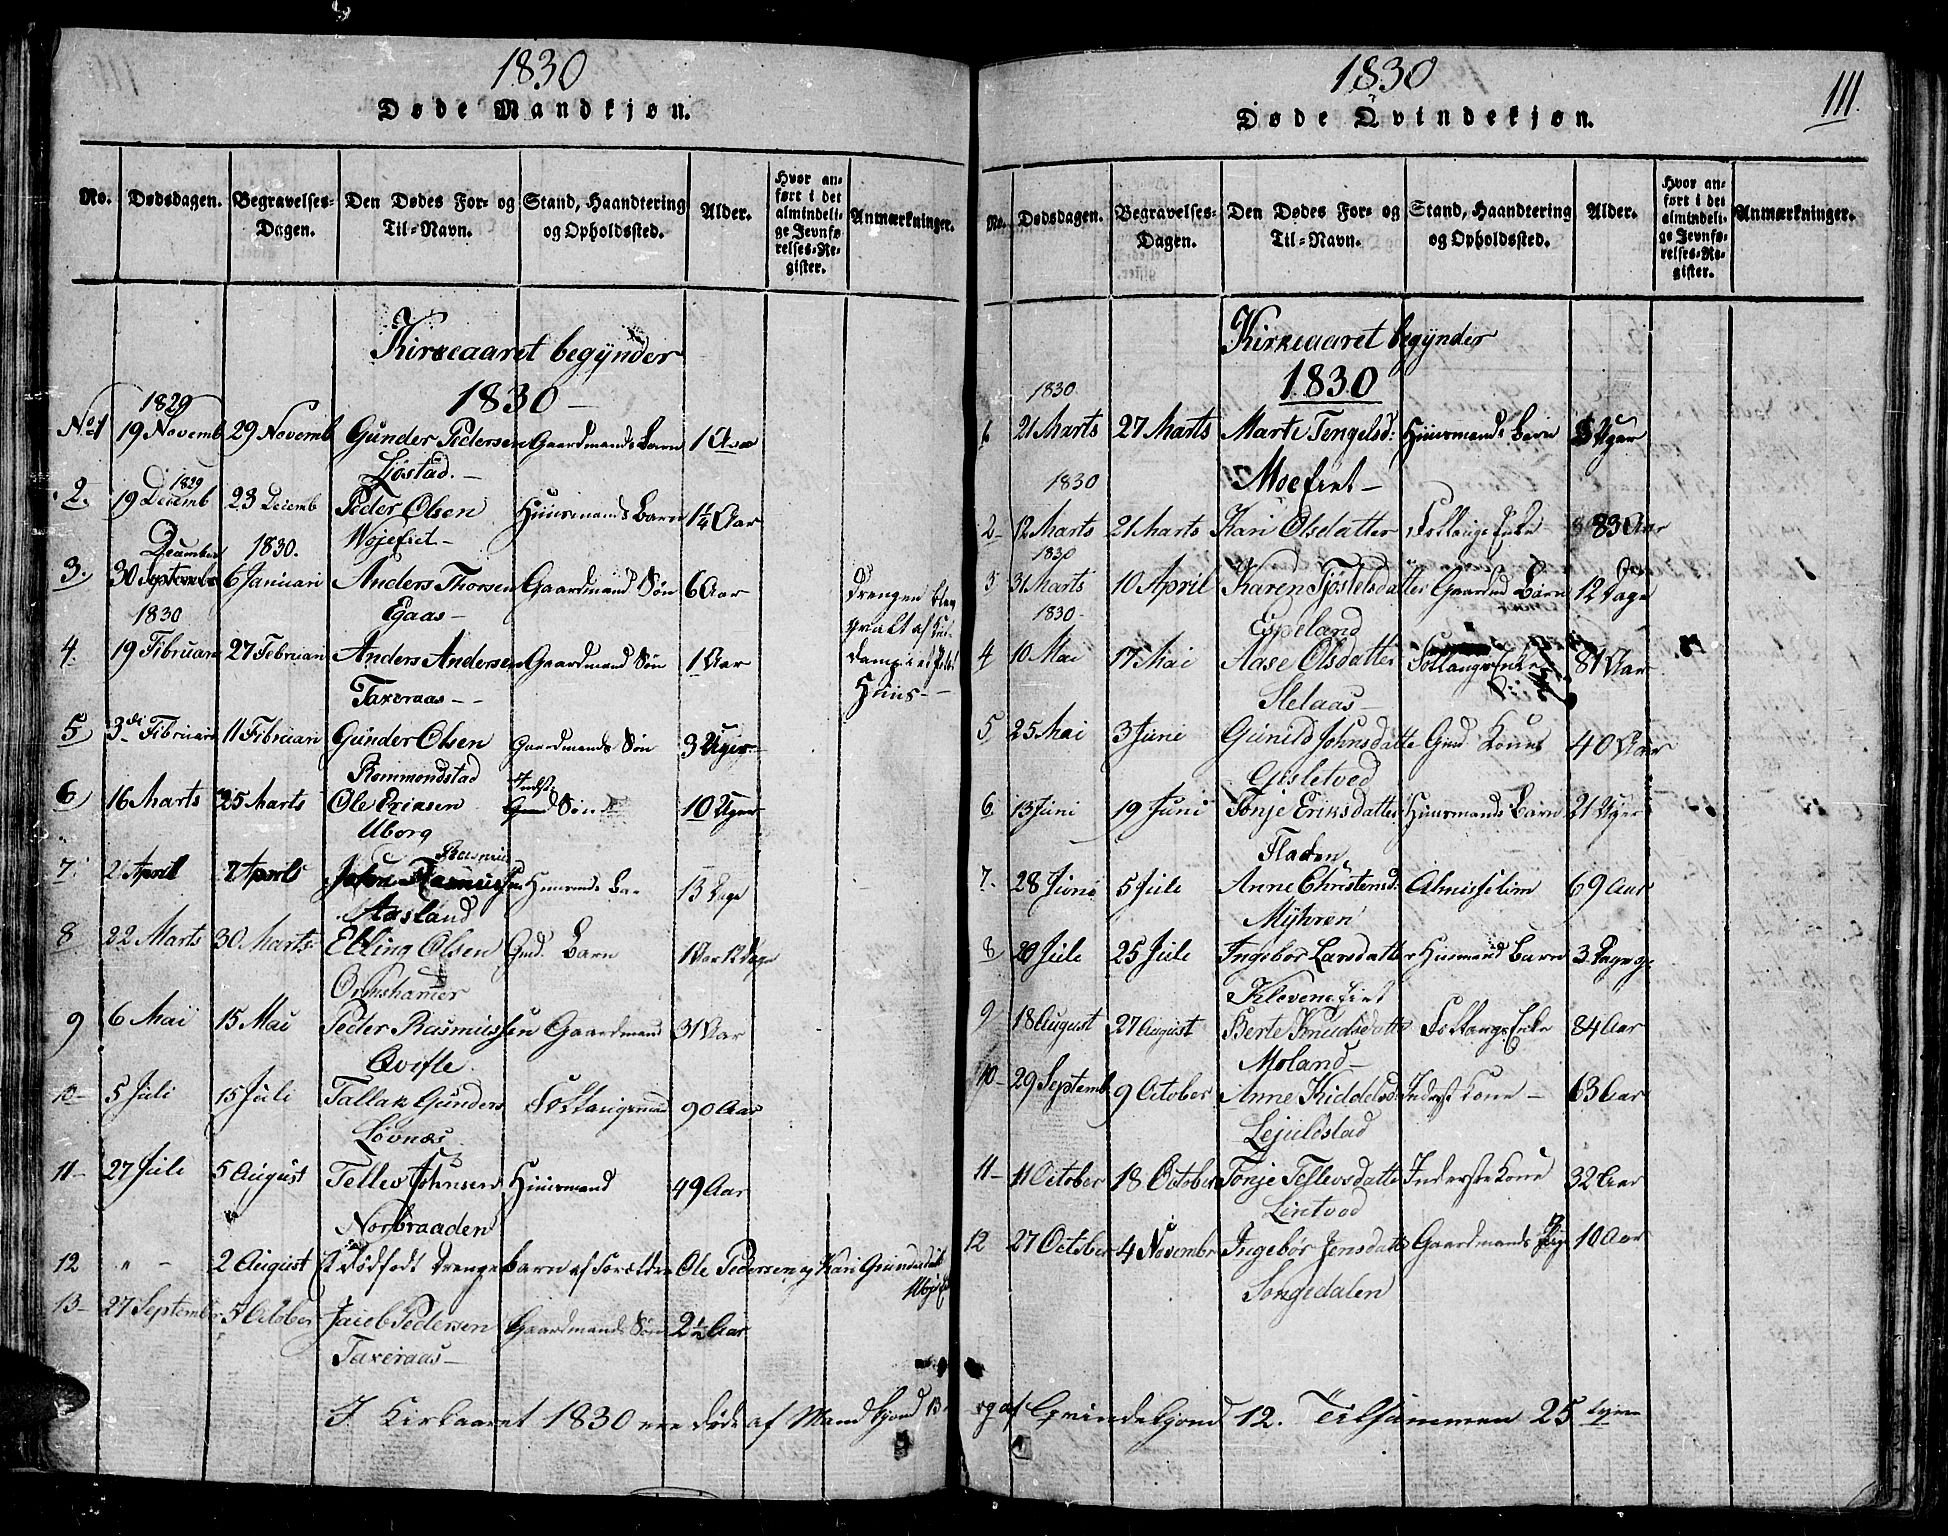 1830
Døde Mandkjøn.
No. Dødsdagen. Begravelses-Dagen. Den Dødes For- og Til-Navn. Stand, Haandtering og Opholdssted. Alder. Hvor anført i det almindelige Jevnførelses-Register. Anmærkninger.
Kirkeaaret begynder
1830
1829
No 1 19 Novemb 29 Novemb Gunder Pedersen Gaardmands Barn 1 Aar
Ljøstad.
1829
2. 19 Decemb 23 Decemb Peder Olsen Huusmands Barn 1¼ Aar
Mojefiet
December 1830.
3. 30 6 Januari Anders Thorsen Gaardmand Søn 6 Aar Drengen blev
Egaas qvalt af
1830
4. 19 Februari 27 Februari Anders Andersen Gaardmand Søn 1 Aar
Taxeraas Huus
5 3di Februari 11 Februari Gunder Olsen Gaardmands Søn 3 Uger
Rommondstad
6 16 Marts 25 Marts Ole Eriksen Gmd Søn 10 Uger
Uborg
7. 2 April 7 April Rasmus 13 Dage
Aasland
8 22 Marts 30 Marts Elling Olsen Gmd. Barn 1 Aar 12 Dage
Ormshamer
9 6 Mai 15 Mai Peder Rasmussen Gaardmand 31 Aar
Qvifte
10 5 Juli 15 Juli Tallak Gunders Folkangsmand 90 Aar
Løvnæs
11 27 Juli 5 August Tellev Johnsen Huusmand 49 Aar
Norbraaden
12 " - 2 August Et dødfødt Drengebarn af Forældre Ole Pedersen og Kari Gundersdatt
13 27 September 5 October Jacob Pedersen Gaardmands Søn 2½ Aar
Taxeraas
I Kirkeaaret 1830 ere døde af Mandkjønd 13
1830
111.
Døde Qvindekjøn.
No. Dødsdagen. Begravelses-Dagen. Den Dødes For- og Til-Navn. Stand, Haandtering og Opholdssted. Alder. Hvor anført i det almindelige Jevnførelses-Register. Anmærkninger.
Kirkeaaret begynder
1830
1830
1 21 Marts 27 Marts Marte Tengelsd: Huusmands Barn Uger
1830 Moefiet
2 12 Marts 21 Marts Kari Olsdatter Folkangs Enke 83 Aar
1830
3 31 Marts 10 April Karen Tjøstelsdatter Gaardmd Barn 12 Dage
1830 Espeland
4 10 Mai 17 Mai Aase Olsdatter Folkangs Enke 81 Aar
Slelaas
5 25 Mai 3 Juni Gunild Johnsdatte Gmd Kone 40 Aar
Gisletvod
6 13 Juni 19 Juni Tonje Eriksdatter Huusmands Barn 21 Uger
Fladen
7. 28 Juni 5 Juli Anne Christensd: Almisselim 69 Aar
Myhren
8 20 Juli 25 Juli Ingebor Larsdatter Huusmand Barn 3 Dage
Klevenefiet
9 18 August 27 August Berte Knudsdatte Folkangs Enke 84 Aar
Moland
10 29 Septemb 9 October Anne Kiddelsd Inderst Kone 63 Aar
Lejulostad
11 11 October 18 October Tonje Tellevsdatte Inderste Kone 32 Aar
Lintvod
12 27 October 4 Novembr Ingebør Jensdatt Gaardmands Pige 10 Aar
Songedalen
og af Qvindekjønd 12. Tilsammen 25